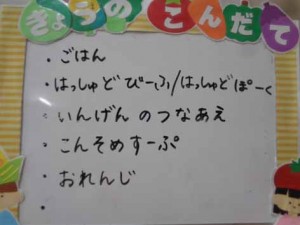 きょうのこんだて
・ごはん
・はっしゅどびーふ/はっしゅどぽーく
・いんげんのつなあえ
・こんそめすーぷ
・おれんじ
・